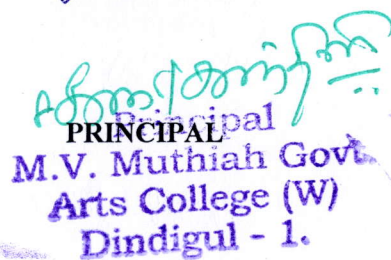 PRINCIPAL
Principal
M.V. Muthiah Govt.
Arts College (W)
Dindigul - 1.